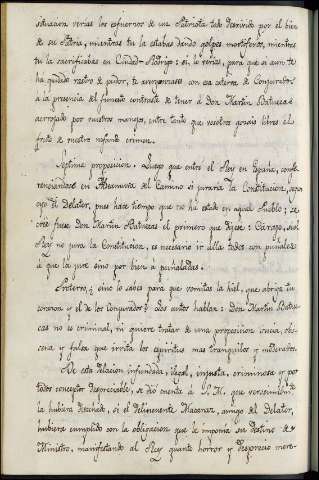 situacion verias los esfuerzos de un Patriota todo desvivido por el bien
de su Patria, mientras tu la estabas dando golpes mortiferos, mientras
tu la sacrificabas en Ciudad-Rodrigo: si, lo verias, para que si aun te
ha quedado rastro de pudor, te avergonzases con esa caterva de Conjurados
a la presencia del funesto contraste de tener a Don Martin Batuecas
arropado por vuestros manejos, entre tanto que vosotros gozais libres el
fruto de vuestro infante crimen.
Septima proposicion. Luego que entró el Rey en España,
en del Camino si juraria la Constitucion,
que el Delator, pues hace tiempo que no ha estado en aquel Pueblo;
fuese Don Martin Batuecas el primero que dijese: Carajo, si el
Rey no jura la Constitucion, es necesario ir allá todos con puñales
á que la jure sino por bien a puñaladas.
Protervo, ¿sino lo sabes para que vomitas la hiel, que abriga tu
corazon y el de los Conjurados? Los autos hablan: Don Martin Batue-
cas no es criminal, ni quiere tratar de una proposicion sucia, obs-
cena y falsa que irrita los espiritus mas tranquilos y moderados.
De esta delacion infundada, ilegal, injusta, criminosa y por
todos conceptos despreciable, se dió cuenta á S. M. que
la hubiera desechado, si el delincuente Macanaz, amigo del Delator,
hubiera cumplido con la obligacion que le imponia su destino de
Ministro, manifestando al Rey quanto horror y desprecio mere-